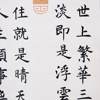 世上繁華三
淡即是浮雲
住就是晴天